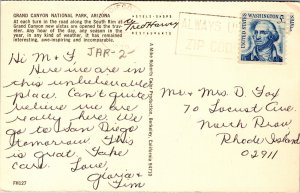 GRAND CANYON NATIONAL PARK, ARIZONA
At each turn in the road along the South Rim of
Grand Canyon new vistas are opened to the trav-
eler. Any hour of the day, any season in the
year, in any kind of weather, it has remained
interesting, awe-inspiring and incomparable.
HOTELS • SHOPS
Fred Harvey
RESTAURANTS
ALWAYS
UNITED STATES
5¢
Hi M & F JAR-2-
Here we are in
this unbelievable
place. Can't quite
believe we are
really here. We
go to San Diego
tomorrow. This
is great. Take
care. Love,
Gloria &
Jim
FH127
A Mike Roberts Color Production, Berkeley, California 94710
Mr & Mrs D. Fay
70 Locust Ave.
North Prov
Rhode Island
02911